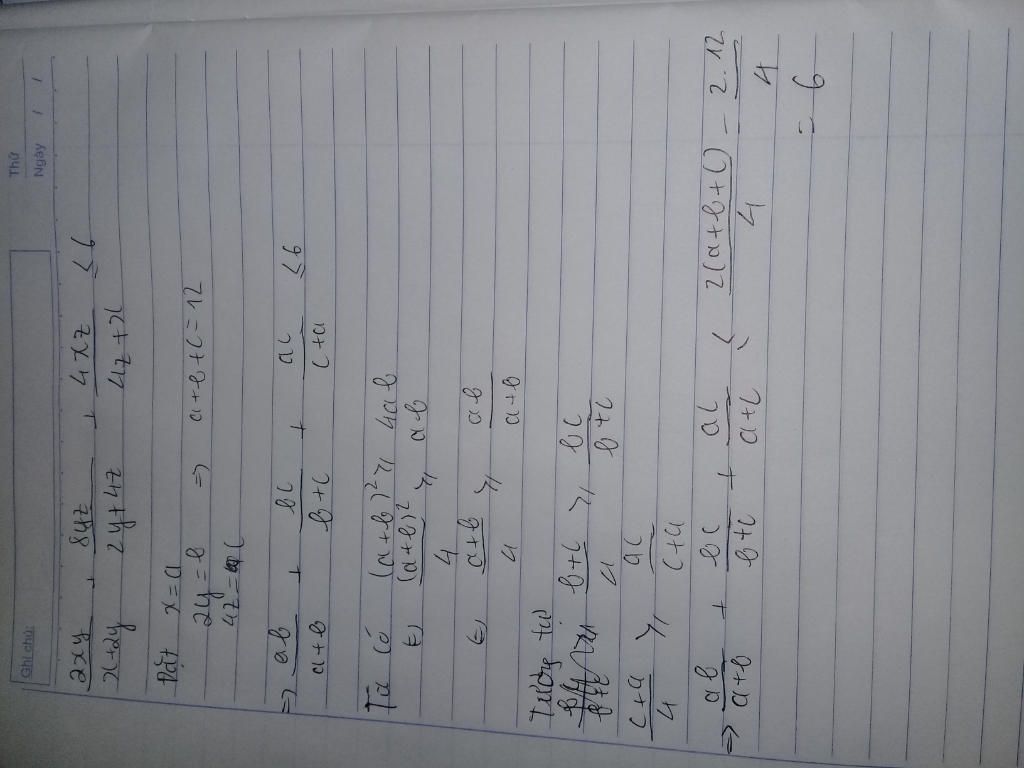 Ghi chú:
Thứ
Ngày / /
2xy/(x+2y) + 8yz/(2y+4z) + 4xz/(4z+x) ≤ 6
Đặt x = a
2y = b => a+b+c = 12
4z = c
=> ab/(a+b) + bc/(b+c) + ac/(c+a) ≤ 6
Ta có (a+b)² ≥ 4ab
(=) (a+b)²/4 ≥ ab
(=) (a+b)/4 ≥ ab/(a+b)
Tương tự (b+c)/4 ≥ bc/(b+c)
(c+a)/4 ≥ ac/(c+a)
=> ab/(a+b) + bc/(b+c) + ac/(a+c) ≤ 2(a+b+c)/4 = 2.12/4
= 6